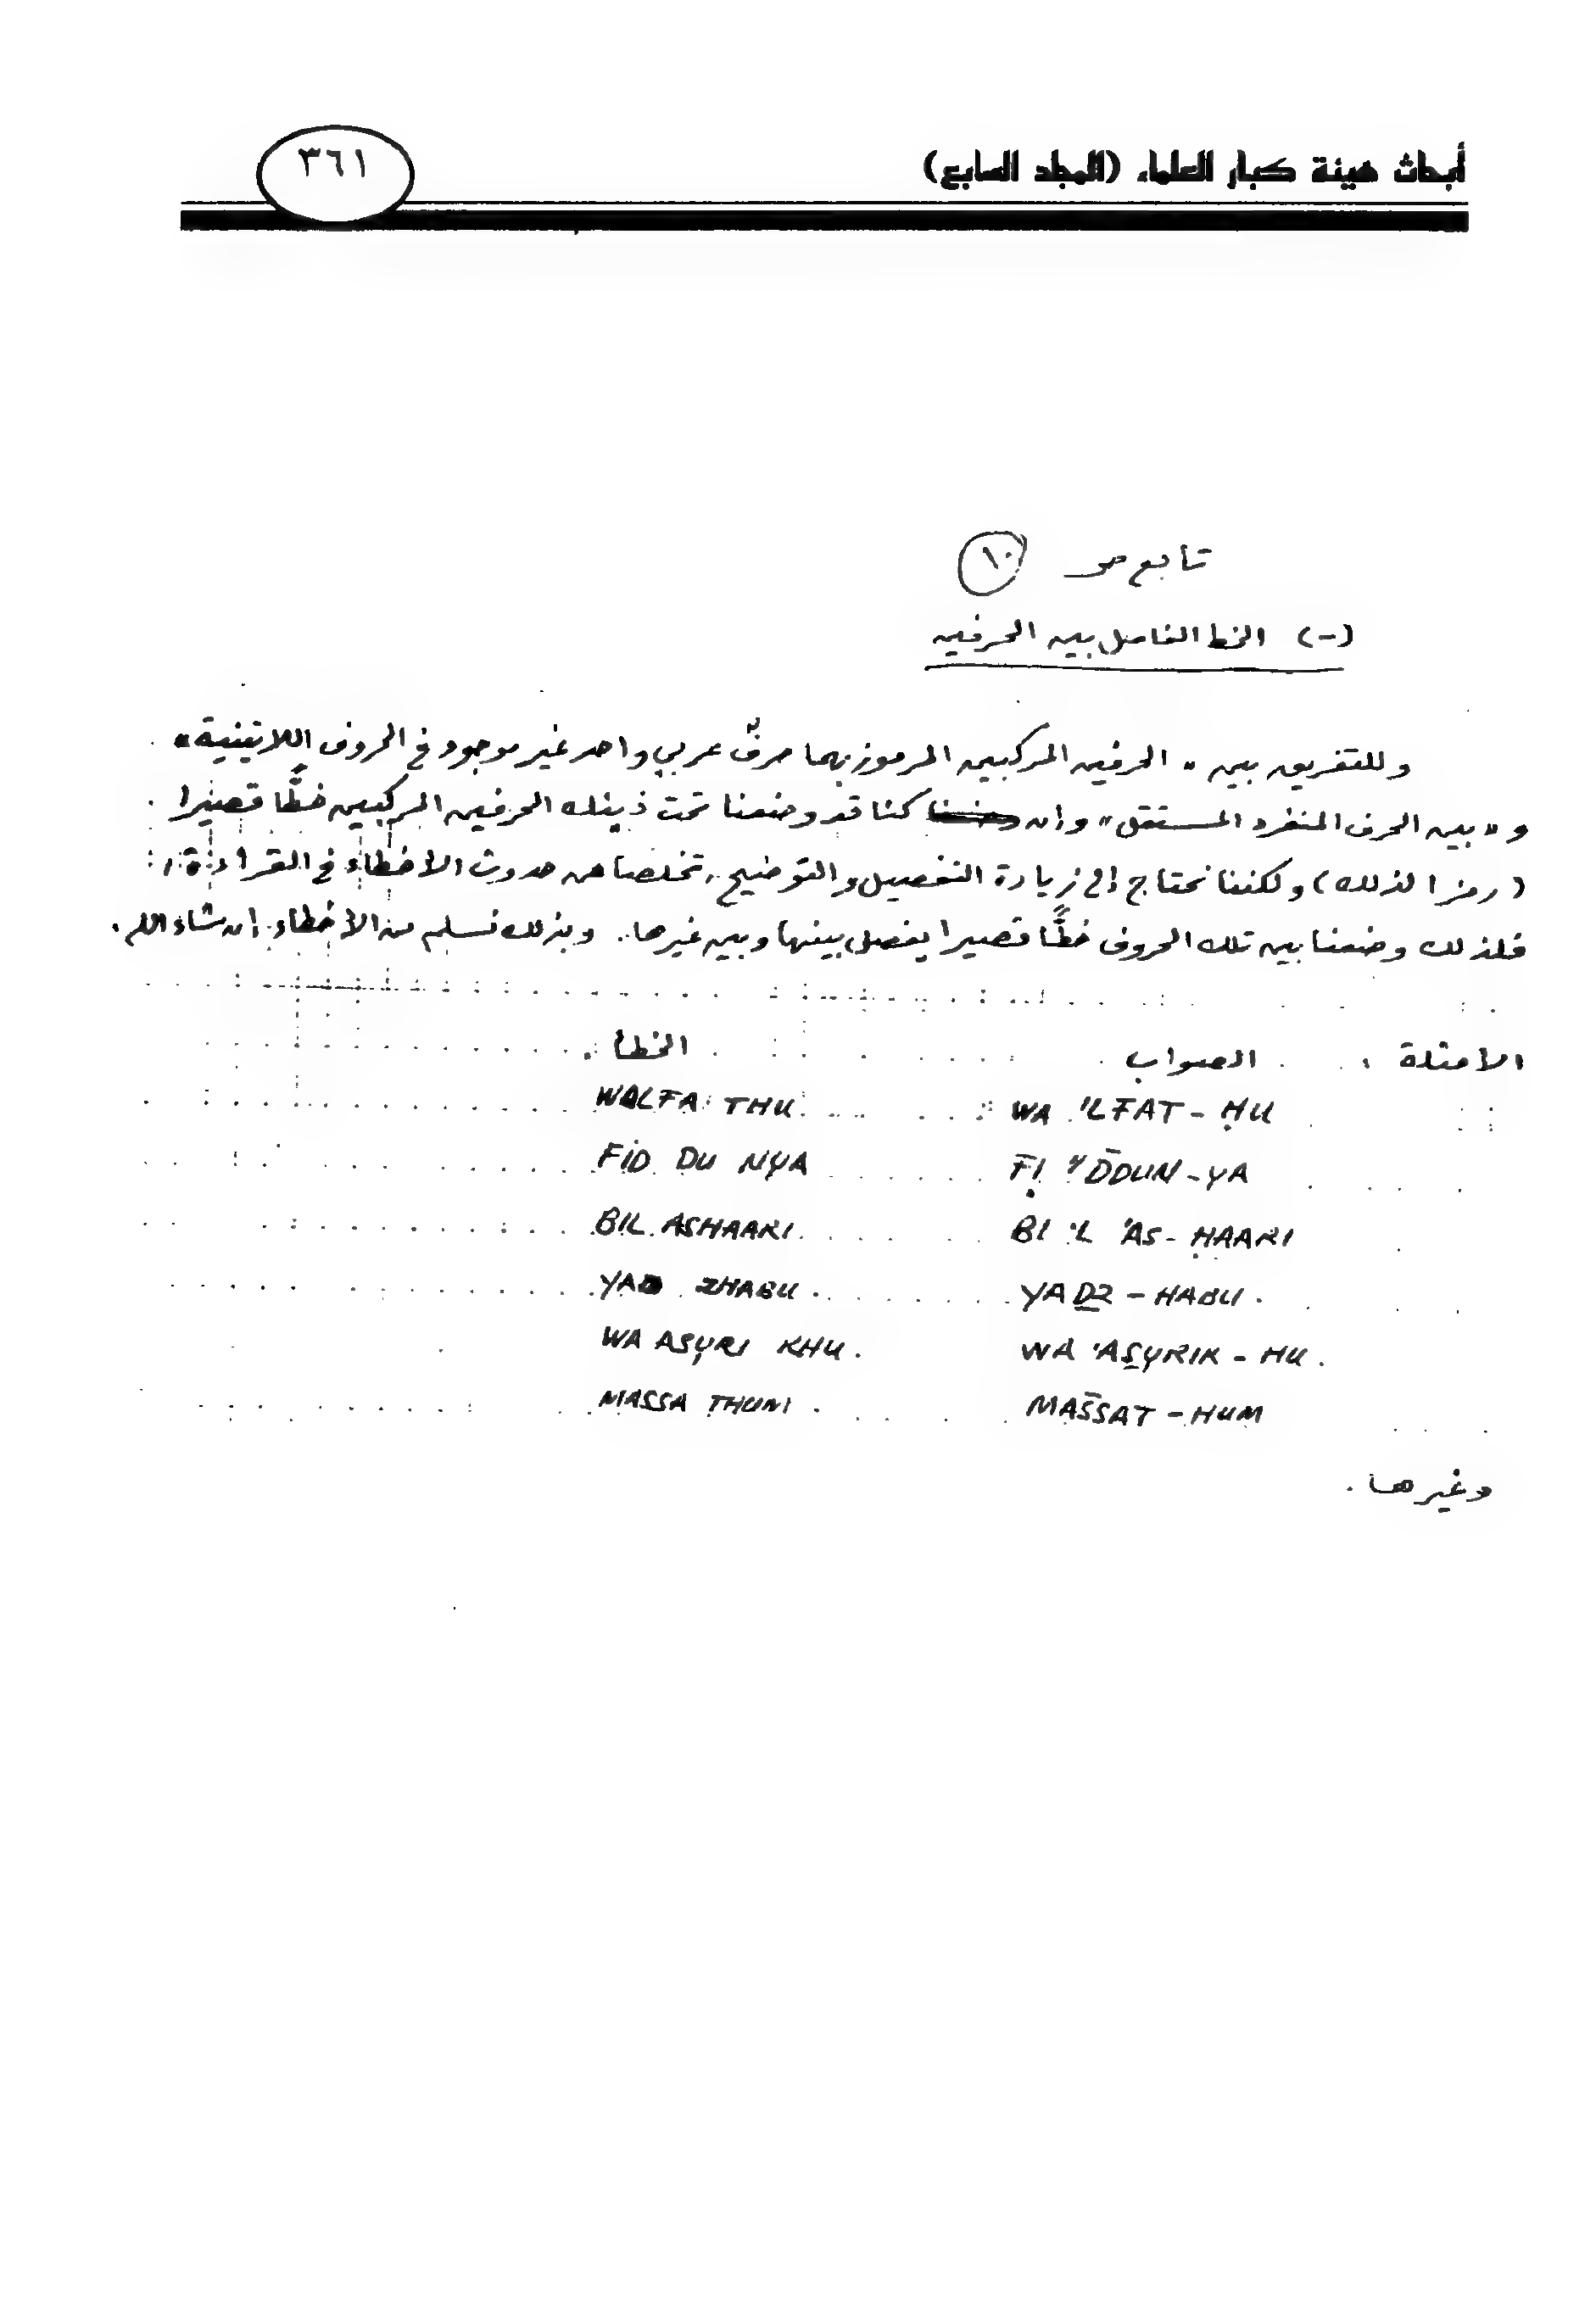 أبحاث هيئة كبار العلماء (المجلد السابع)
٣٦١
تابع ص ١٠
(-) الخط الفاصل بين الحرفين
وللتفريق بين " الحرفين المركبين المرموز بهما حرفٌ عربي واحد غير موجود في الحروف اللاتينية "
و " بين الحرف المنفرد المستقل " وإن كنا قد وضعنا تحت ذينك الحرفين المركبين خطًّا قصيرا
( رمزا لذلك ) ولكننا نحتاج إلى زيادة التفصيل والتوضيح، تخلصا من حدوث الأخطاء في القراءة،
فلذلك وضعنا بين تلك الحروف خطًّا قصيرا يفصل بينها وبين غيرها. وبذلك نسلم من الأخطاء إن شاء الله.
الأمثلة : الصواب الخطأ
WA 'LFAT - ḤU WALFA THU
F̄Ị " D̄DUN - YA FID DU NYA
BI 'L 'AS - ḤAARI BIL ASHAARI
YA D̲Z̲ - HABU. YAD ZHABU.
WA 'AS̲YRIK - HU. WA ASYRI KHU.
MAS̄SAT - HUM MASSA THUM.
وغيرها .